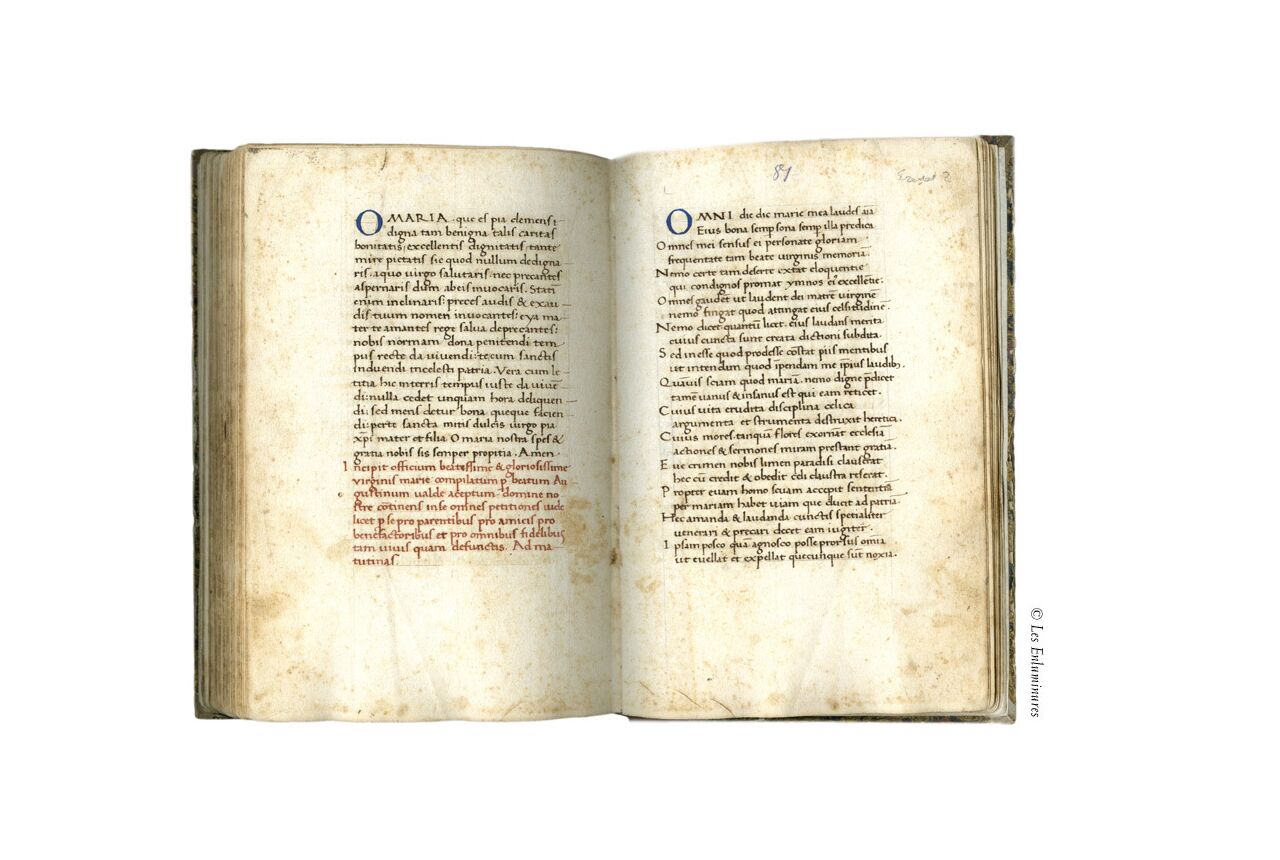 O MARIA. que es pia clemens &
digna tam benigna talis caritas
bonitatis; excellentis dignitatis tante
mire pietatis sic quod nullum dedigna
ris. a quo virgo salutaris: nec precantes
aspernaris dum ab eis invocaris. Stati
enim inclinaris: preces audis & exau
dis tuum nomen invocantes: eya ma
ter te amantes rege salva deprecantes:
nobis normam dona penitendi tem
pus recte da vivendi: tecum sanctis
induendi in celesti patria. Vera cum le
titia hic in terris tempus iuste da vivē
di: nulla cedet unquam hora deliquen
di: sed mens detur bona queque facien
di: per te sancta mitis dulcis virgo pia
xp̄i mater et filia. O maria nostra spes &
gratia nobis sis semper propitia. Amen
Incipit officium beatissime & gloriosissime
virginis marie compilatum p beatum Au
gustinum valde aceptum domine no
stre cōtinens in se omnes petitiones vide
licet p se pro parentibus pro amicis pro
benefactoribus et pro omnibus fidelibus
tam vivis quam defunctis. Ad ma
tutinas.
81
OMNI die dic marie mea laudes aīa
Eius bona semp sona semp illa predica
Omnes mei sensus ei personate gloriam
frequentate tam beate virginis memoriā.
Nemo certe tam deserte extat eloquentie
qui condignos promat ymnos eiꝰ excellētie:
Omnes gaudet ut laudent dei matrē virginē
nemo fingat quod attingat eius celsitudinē.
Nemo dicet quantū licet. eius laudans merita
cuius cuncta sunt creata dictioni subdita.
Sed inesse quod prodesse cōstat piis mentibus
ut intendum quod ipendam me ipsius laudibꝫ.
Quavis sciam quod mariā. nemo digne p̄dicet
tamē vanus & insanus est qui eam reticet.
Cuius vita erudita disciplina celica
argumenta et strumenta destruxit heretica.
Cuius mores. tanquā flores exornāt ecclesiā
actiones & sermones miram prestant gratia.
Eve crimen nobis limen paradisi clauserat
hec cū credit & obedit celi claustra reserat.
Propter evam homo sevam accepit sententiā
per mariam habet viam que ducit ad patria.
Hec amanda & laudanda cunctis specialiter
venerari & precari decet eam iugiter.
Ipsam posco quā agnosco posse prorsus omia
ut evellat et expellat quecunque sūt noxia.
© Les Enluminures